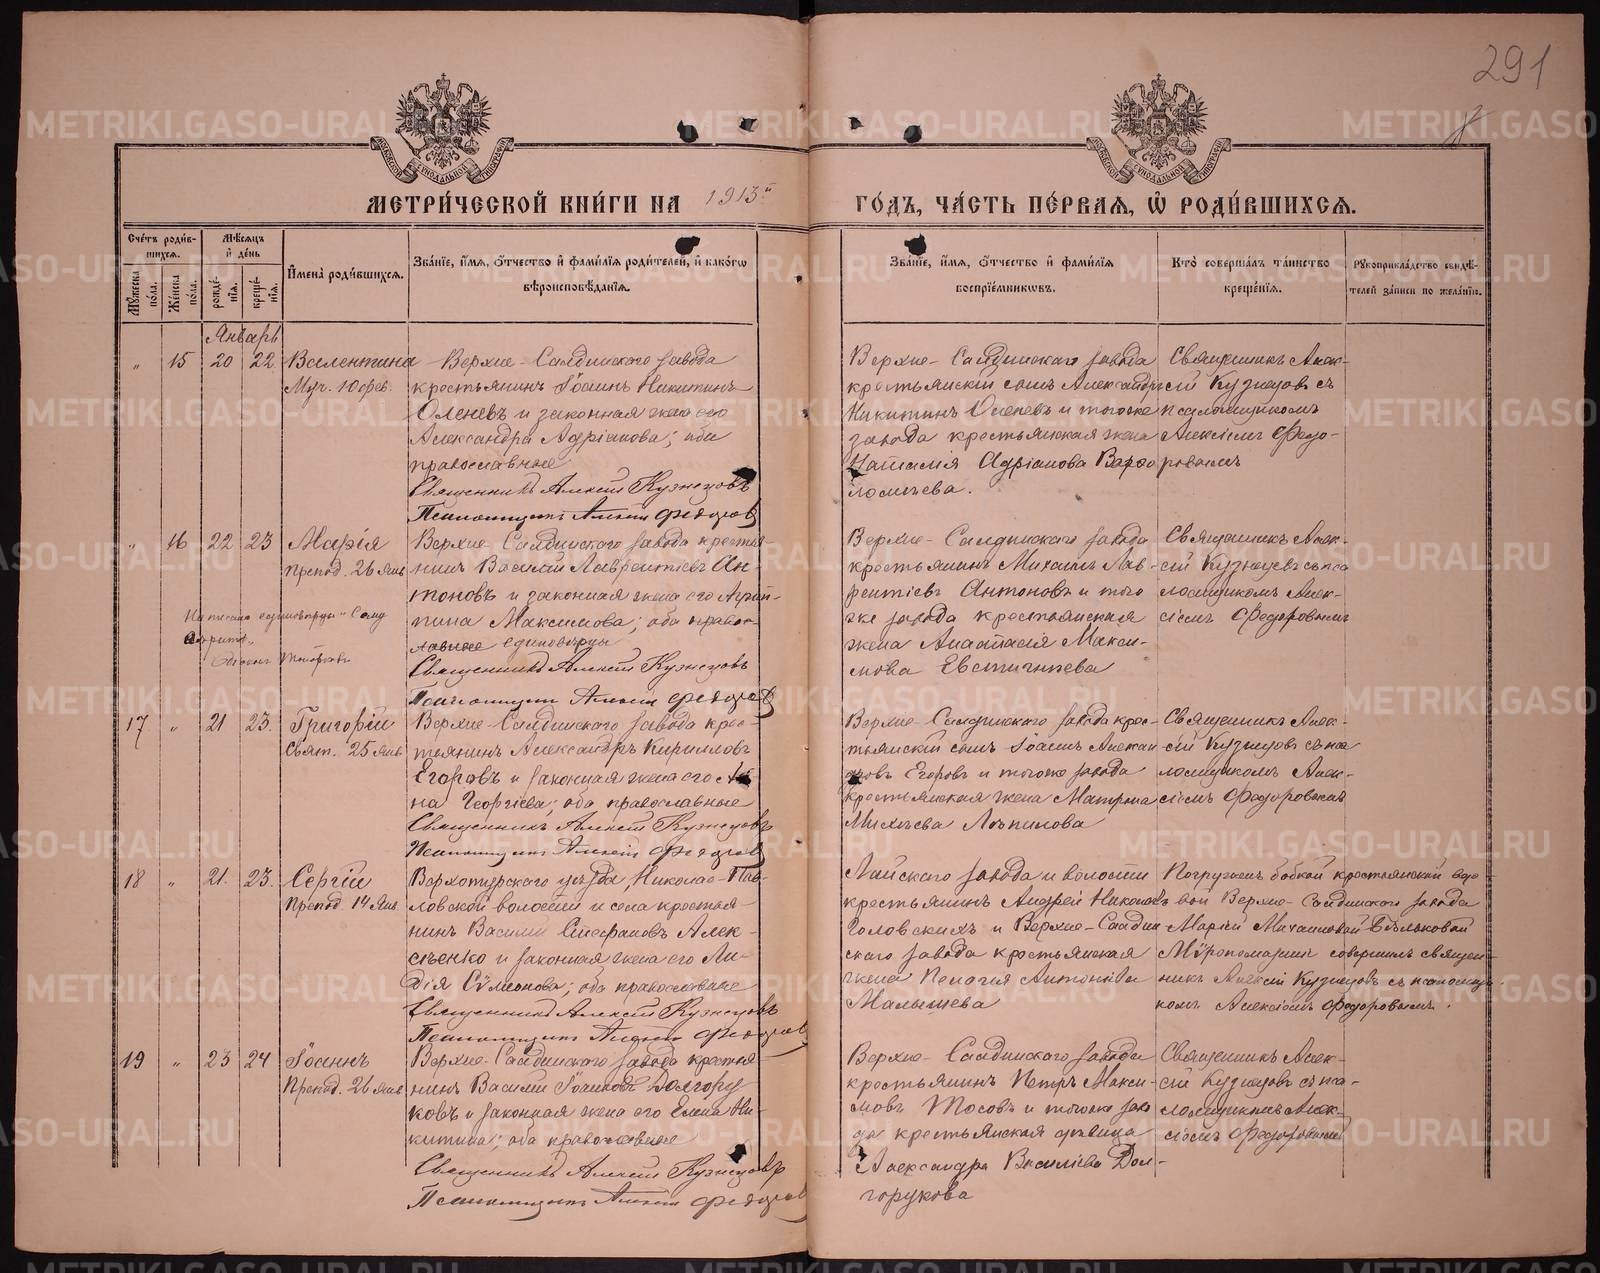 291
МЕТРИ́ЧЕСКОЙ КНИ́ГИ НА 1913й ГО́ДЪ, ЧА́СТЬ ПЕ́РВАЯ, Ѡ РОДИ́ВШИХСЯ.
Сче́тъ роди́вшихся.
Му́жеска по́ла.
Же́нска по́ла.
Мѣ́сяцъ и́ де́нь
рожде́нїя.
креще́нїя.
И҆мена̀ роди́вшихся.
Зва́нїе, и҆́мя, ѻ҆́тчество и҆ фами́лїя роди́телей, и҆ како́гѡ вѣроисповѣ́данїя.
Зва́нїе, и҆́мя, ѻ҆́тчество и҆ фами́лїя воспрїе́мникѡвъ.
Кто̀ соверша́лъ та́инство креще́нїя.
Рукоприкла́дство свидѣ́телей за́писи по жела́нїю.
Январь
" 15 20 22 Валентина
Муч. 10 фев.
Верхне-Салдинскаго завода
крестьянинъ Іоаннъ Никитинъ
Оленевъ и законная жена его
Александра Адріанова; оба
православные
Священникъ Алексій Кузнецовъ
Псаломщикъ Алексій Федоровъ
Верхне-Салдинскаго завода
крестьянскій сынъ Александръ
Никитинъ Оленевъ и тогоже
завода крестьянская жена
Наталія Адріанова Варфо
ломеева.
Священникъ Алек-
сій Кузнецовъ съ
псаломщикомъ
Алексіемъ Федо-
ровымъ
" 16 22 23 Марія
Препод. 26 Янв
Верхне-Салдинскаго завода крестья-
нинъ Василій Лаврентіевъ Ан-
тоновъ и законная жена его Агрип-
пина Максимова; оба право-
славные единоверцы
Священникъ Алексій Кузнецовъ
Псаломщикъ Алексій Федоровъ
Верхне-Салдинскаго завода
крестьянинъ Михаилъ Лав-
рентіевъ Антоновъ и того
же завода крестьянская
жена Анастасія Макси-
мова Евстигнеева
Священникъ Алек-
сій Кузнецовъ съ пса
ломщикомъ Алек-
сіемъ Федоровымъ
17 " 21 23. Григорій
Свят. 25 Янв
Верхне-Салдинскаго завода крес-
тьянинъ Александръ Кирилловъ
Егоровъ и законная жена его
на Георгіева; оба православные
Священникъ Алексій Кузнецовъ
Псаломщикъ Алексій Федоровъ
Верхне-Салдинскаго завода крес-
тьянскій сынъ Іоаннъ Алексан
дровъ Егоровъ и тогоже завода
крестьянская жена Матрона
Михеева Лѣпилова
Священникъ Алек-
сій Кузнецовъ съ пса
ломщикомъ Алек-
сіемъ Федоровымъ
18 " 21. 23. Сергій
Препод. 14 Янв.
Верхотурского уезда, Николае-Пав-
ловской волости и села крестья-
нинъ Василій Стефановъ Алек-
сѣенко и законная жена его Ли-
дія Сѵмеонова; оба православные
Священникъ Алексій Кузнецовъ
Псаломщикъ Алексій Федоровъ
Лайскаго завода и волости
крестьянинъ Андрей Николаевъ
Головскихъ и Верхне-Салдин
скаго завода крестьянская
жена Пелагія Антоніева
Малышева
Погруженъ бабкой крестьянской вдо-
вой Верхне-Салдинскаго завода
Маріей Михаиловой Бѣльковой
Мѵропомазаніе совершилъ священ-
никъ Алексій Кузнецовъ съ псаломщи-
комъ Алексіемъ Федоровымъ.
19 " 23 24 Іоаннъ
Препод. 26 Янв
Верхне-Салдинскаго завода крестья
нинъ Василій Іоанновъ Долгору
ковъ и законная жена его Елена Ни-
китина; оба православные
Священникъ Алексій Кузнецовъ
Псаломщикъ Алексій Федоровъ
Верхне-Салдинскаго завода
крестьянинъ Петръ Макси-
мовъ Носовъ и тогоже заво
да крестьянская дѣвица
Александра Василіева Дол-
горукова
Священникъ Алек-
сій Кузнецовъ съ пса-
ломщикомъ Алек-
сіемъ Федоровымъ